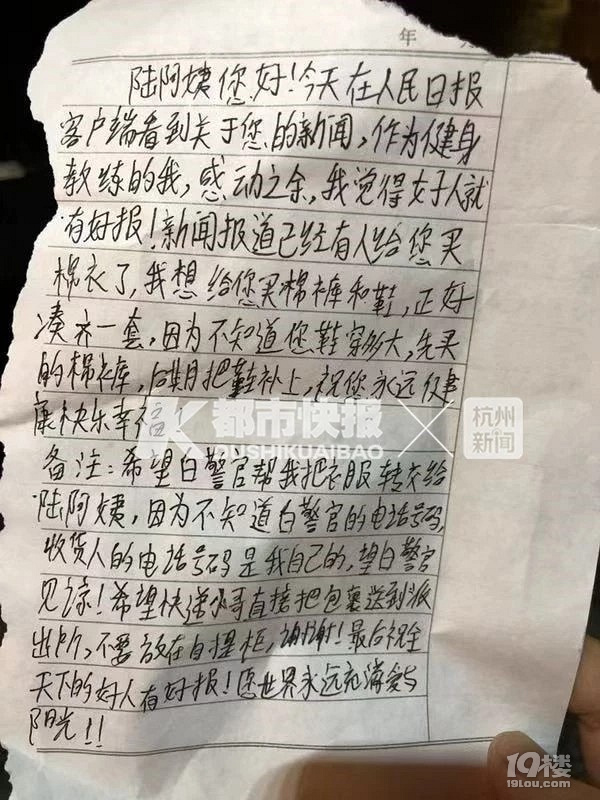 年
陆阿姨您好!今天在人民日报
客户端看到关于您的新闻,作为健身
教练的我,感动之余,我觉得好人就
有好报!新闻报道已经有人给您买
棉衣了,我想给您买棉裤和鞋,正好
凑齐一套,因为不知道您鞋穿多大,先买
的棉裤,后期把鞋补上,祝您永远健
康快乐幸福
都市快报
DUSHIKUAIBAO
杭州
新闻
备注:希望白警官帮我把衣服转交给
陆阿姨,因为不知道白警官的电话号码,
收货人的电话号码是我自己的,望白警官
见谅!希望快递小哥直接把包裹送到派
出所,不要放在自提柜,谢谢!最后祝全
天下的好人有好报!愿世界永远充满爱与
阳光!!
19楼
19lou.com